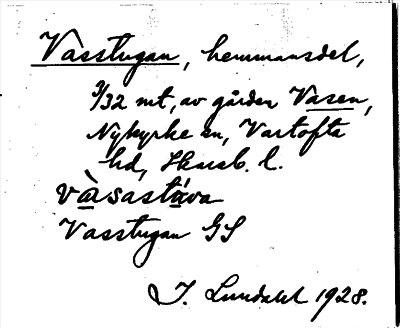 Vasstugan, hemmansdel,
3/32 mt, av gården Vasen,
Nykyrke sn, Vartofta
hd, Skarab. l.
vàsastáva
Vasstugan GS
I. Lundahl 1928.